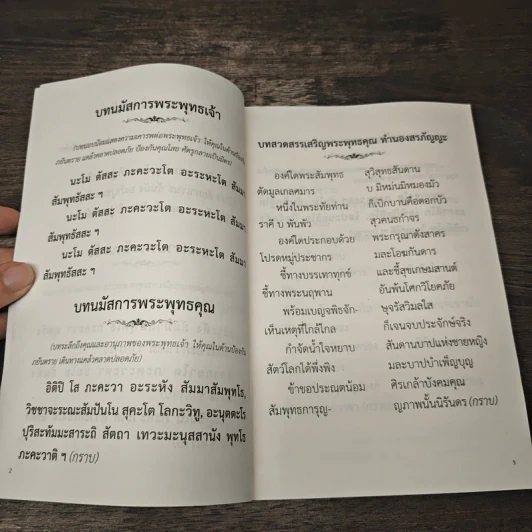 บทนมัสการพระพุทธเจ้า
(บทนอบน้อมแสดงความเคารพต่อพระพุทธเจ้า ให้คุณในด้านป้องกัน
ภยันตราย แคล้วคลาดปลอดภัย ป้องกันคุณไสย ศัตรูกลายเป็นมิตร)
นะโม ตัสสะ ภะคะวะโต อะระหะโต สัมมา
สัมพุทธัสสะ ฯ
นะโม ตัสสะ ภะคะวะโต อะระหะโต สัมมา
สัมพุทธัสสะ ฯ
นะโม ตัสสะ ภะคะวะโต อะระหะโต สัมมา
สัมพุทธัสสะ ฯ
บทนมัสการพระพุทธคุณ
(บทระลึกถึงคุณและอานุภาพของพระพุทธเจ้า ให้คุณในด้านป้องกัน
ภยันตราย เดินทางแคล้วคลาดปลอดภัย)
อิติปิ โส ภะคะวา อะระหัง สัมมาสัมพุทโธ,
วิชชาจะระณะสัมปันโน สุคะโต โลกะวิทู, อะนุตตะโร
ปุริสะทัมมะสาระถิ สัตถา เทวะมะนุสสานัง พุทโธ
ภะคะวาติ ฯ (กราบ)
2
บทสวดสรรเสริญพระพุทธคุณ ทำนองสรภัญญะ
องค์ใดพระสัมพุทธ สุวิสุทธสันดาน
ตัดมูลเกลสมาร บ มิหม่นมิหมองมัว
หนึ่งในพระทัยท่าน ก็เบิกบานคือดอกบัว
ราคี บ พันพัว สุวคนธกำจร
องค์ใดประกอบด้วย พระกรุณาดังสาคร
โปรดหมู่ประชากร มละโอฆกันดาร
ชี้ทางบรรเทาทุกข์ และชี้สุขเกษมสานต์
ชี้ทางพระนฤพาน อันพ้นโศกวิโยคภัย
พร้อมเบญจพิธจัก- ษุจรัสวิมลใส
เห็นเหตุที่ใกล้ไกล ก็เจนจบประจักษ์จริง
กำจัดน้ำใจหยาบ สันดานบาปแห่งชายหญิง
สัตว์โลกได้พึ่งพิง มละบาปบำเพ็ญบุญ
ข้าขอประณตน้อม ศิรเกล้าบังคมคุณ
สัมพุทธการุญ- ญภาพนั้นนิรันดร (กราบ)
3